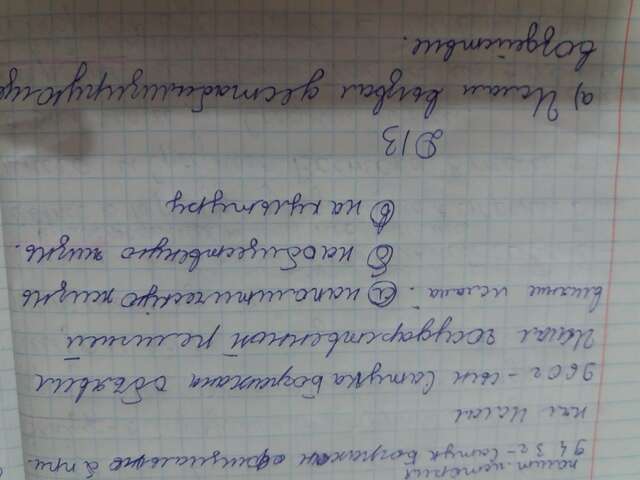 полит. история
943 г - Сатук Бограхан официально принял
нял Ислам
960 г - сын Сатука Баграхана объявил
Ислам государственной религией
влияние ислама: а на политическую жизнь
б на общественую жизнь.
в на культуру
Д/З
а) Ислам вызвал дестабилизирующе
воздействие.